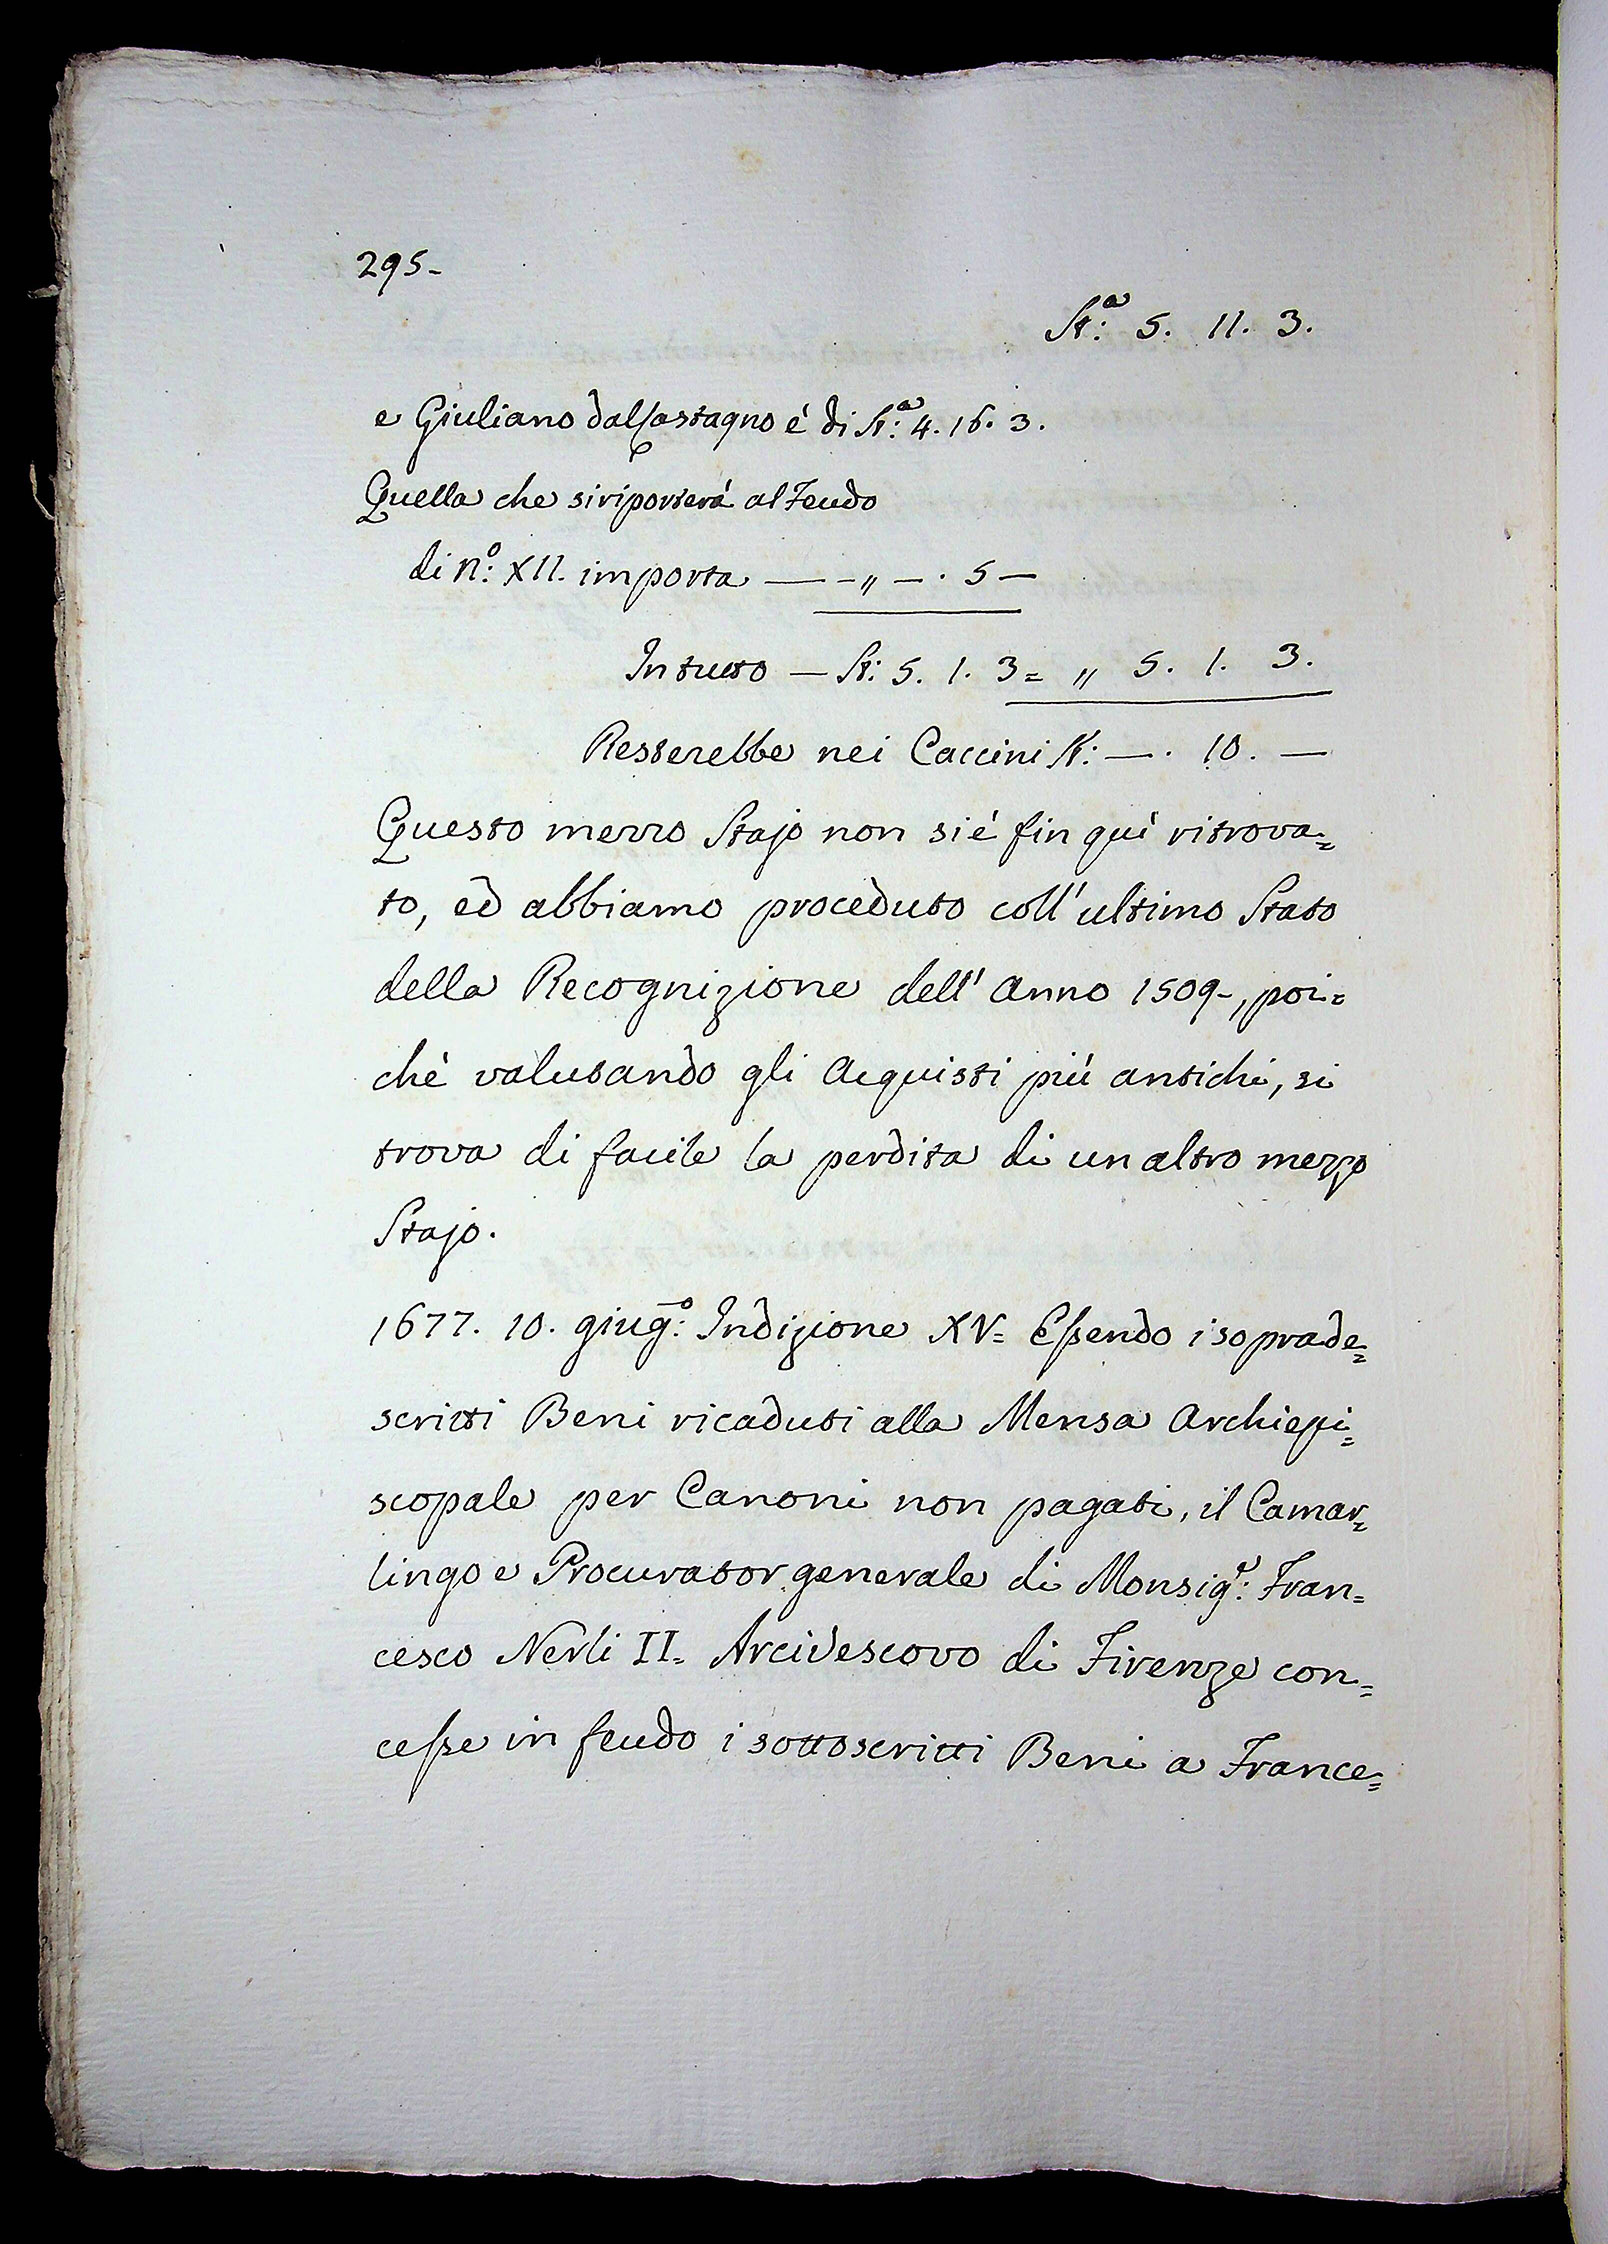 295-
St:ª 5. 11. 3.
e Giuliano dal Castagno é di St:ª 4. 16. 3.
Quella che si riporterá al Feudo
di N:º XII. importa — - „ — . 5 —
In tutto — St: 5. 1. 3 = „ 5. 1. 3.
Resterebbe nei Caccini St: — . 10. —
Questo mezzo Stajo non si é fin quì ritrova=
to, ed abbiamo proceduto coll' ultimo Stato
della Recognizione dell' Anno 1509-, poi=
chè valutando gli Acquisti più antichi, si
trova di facile la perdita di un altro mezzo
Stajo.
1677. 10. giug:º Indizione XV= Essendo i soprade=
scritti Beni ricaduti alla Mensa Archiepi=
scopale per Canoni non pagati, il Camar=
lingo e Procurator generale di Monsig:r Fran=
cesco Nerli II= Arcivescovo di Firenze con=
cesse in feudo i sottoscritti Beni a France=